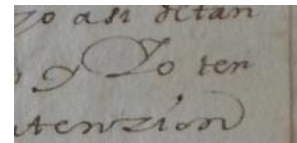 yo asi detan
y Yo ten
atenzion